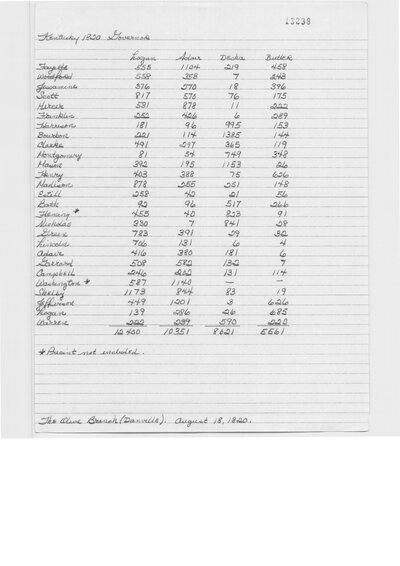 13238
Kentucky 1820 Governor
Logan Adair Desha Butler
Fayette 555 1104 219 458
Woodford 558 358 7 243
Jessamine 376 570 18 396
Scott 817 570 76 175
Mercer 531 878 11 222
Franklin 252 426 6 289
Harrison 181 96 995 153
Bourbon 221 114 1385 144
Clarke 491 297 365 119
Montgomery 81 34 749 348
Mason 392 195 1153 26
Henry 403 388 75 626
Madison 878 255 251 148
Estill 258 40 21 56
Bath 92 96 517 266
Fleming * 455 40 823 91
Nicholas 330 7 841 28
Green 783 391 29 32
Lincoln 706 131 6 4
Adair 416 380 181 6
Garrard 508 582 132 7
Campbell 246 202 131 114
Washington * 587 1140 — —
Shelby 1173 844 83 19
Jefferson 449 1201 3 626
Logan 139 286 26 685
Warren 222 239 590 220
12400 10351 8021 5561
* Precinct not included.
The Olive Branch (Danville). August 18, 1820.